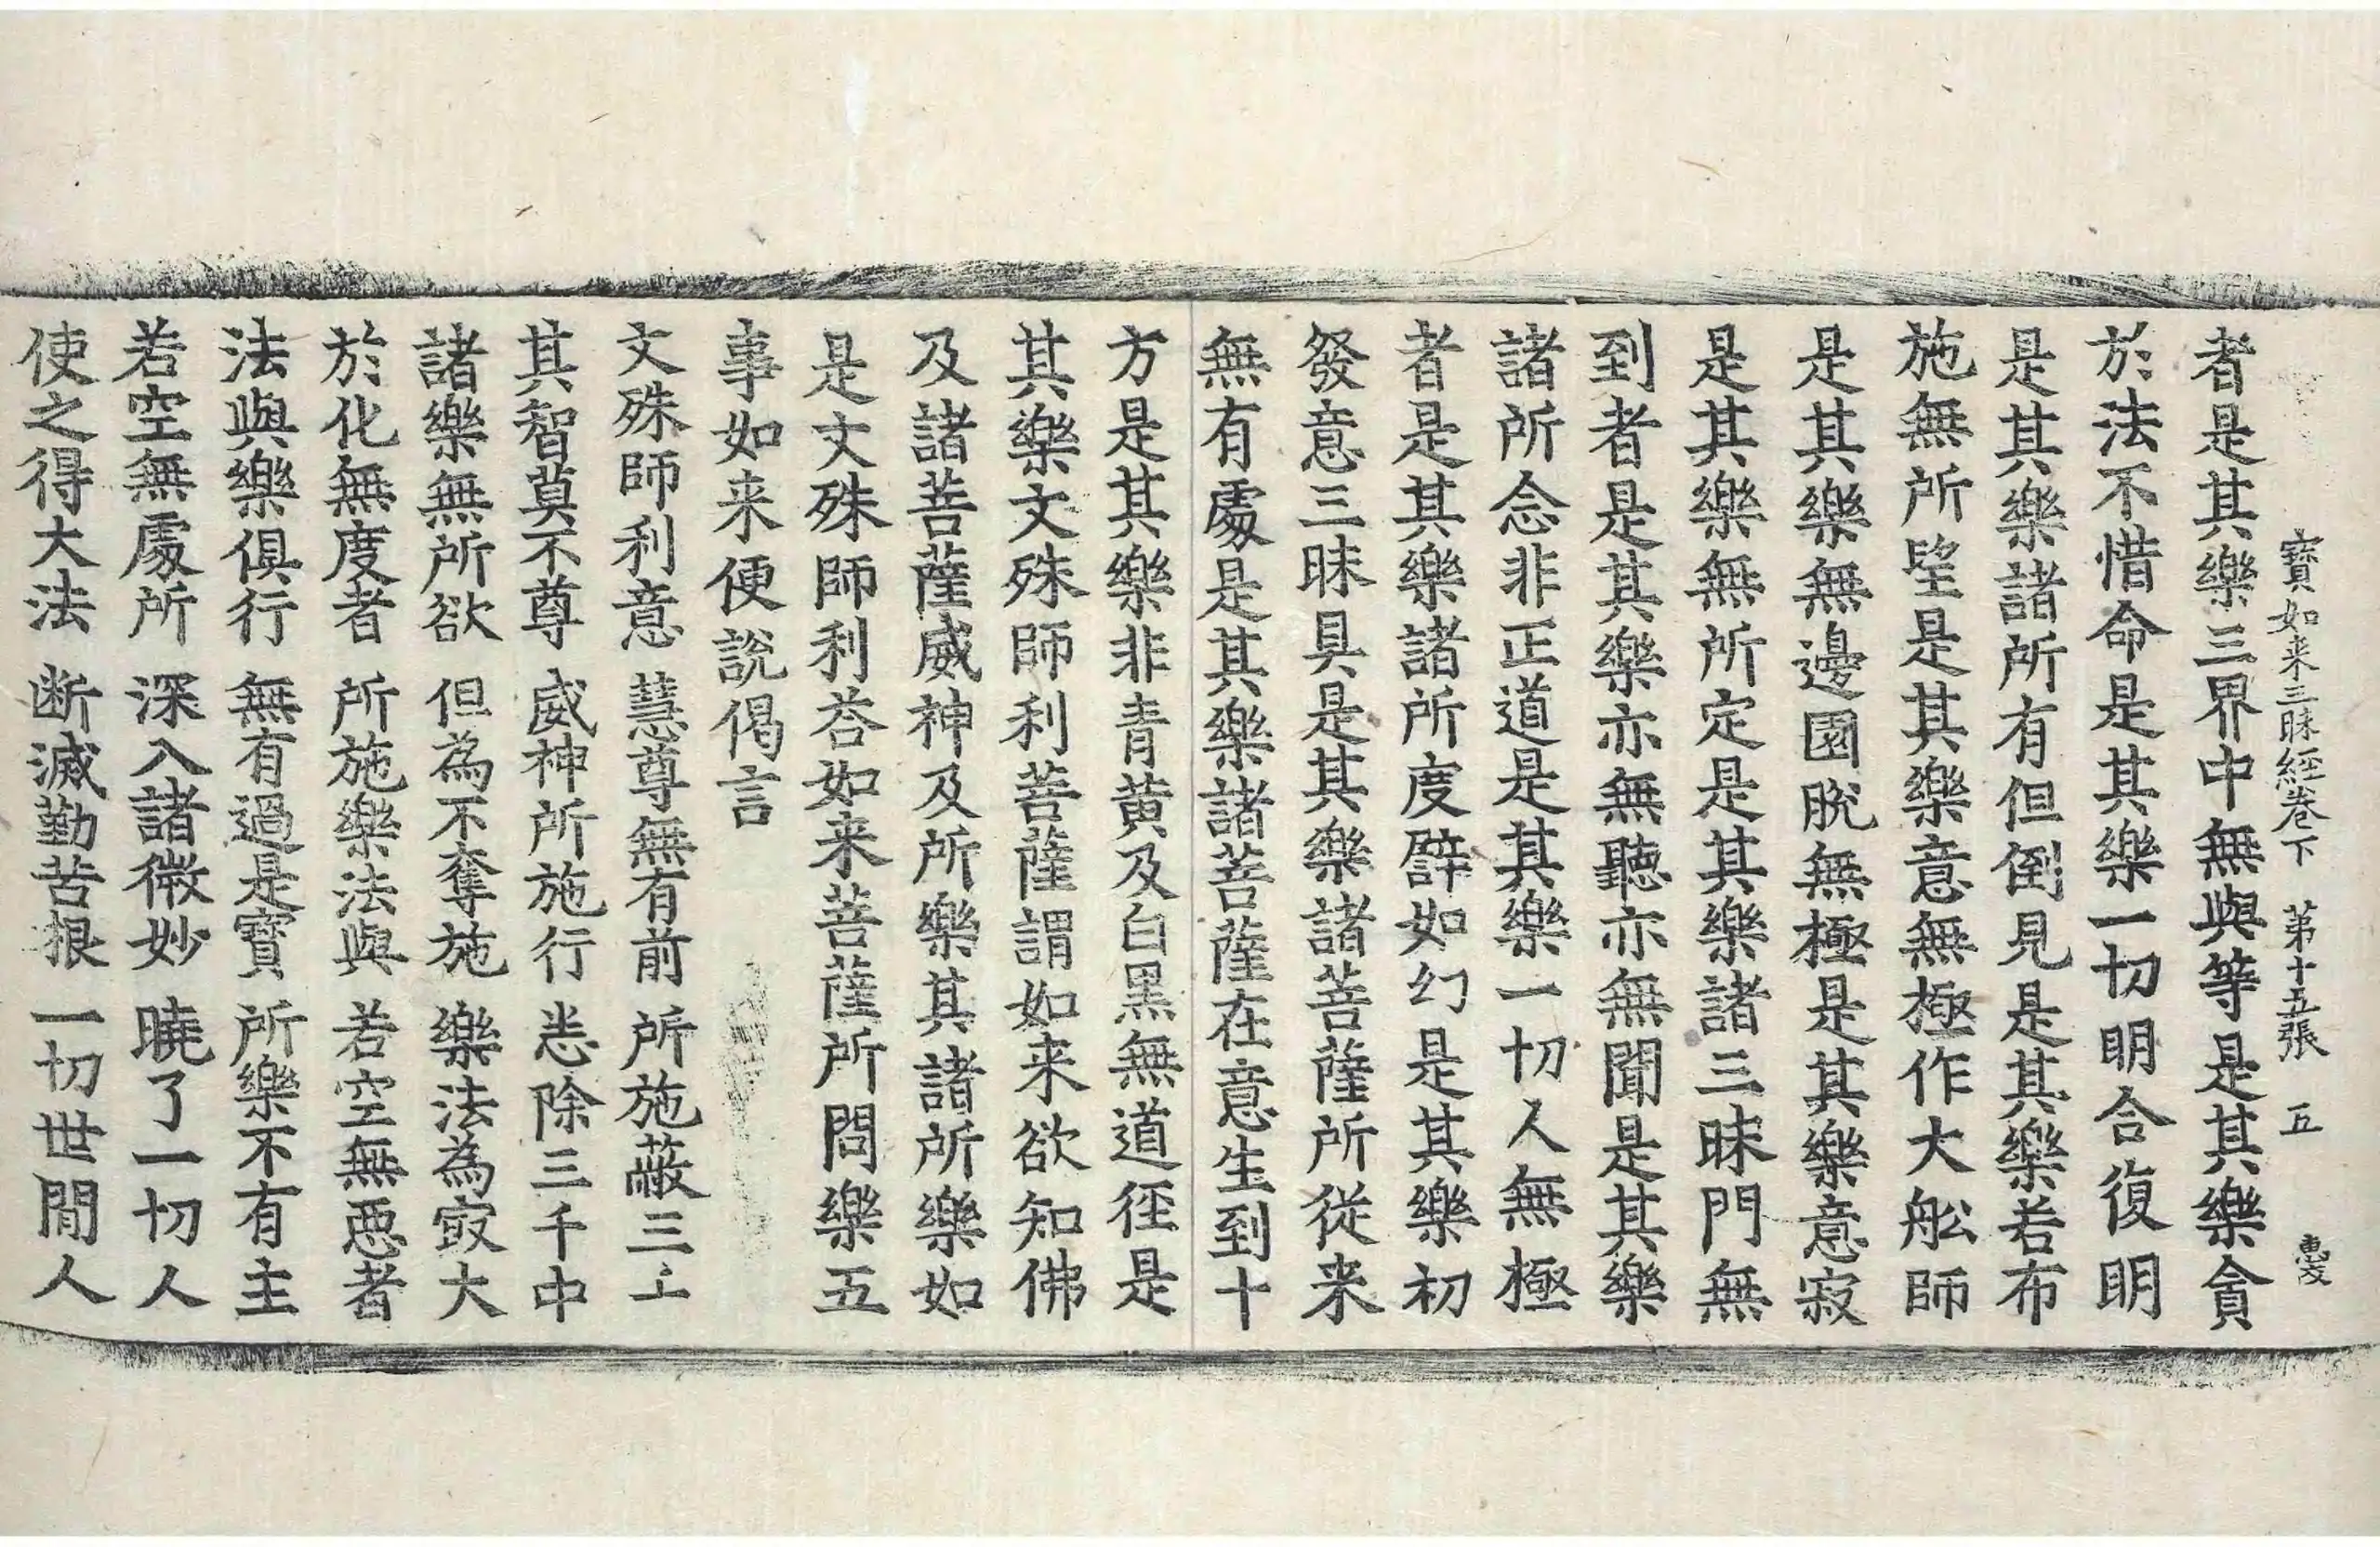 寶如来三昧經卷下　第十五張　五
者是其樂三界中無與等是其樂貪
於法不惜命是其樂一切明合復明
是其樂諸所有但倒見是其樂若布
施無所望是其樂意無極作大舩師
是其樂無邊園脫無極是其樂意寂
是其樂無所定是其樂諸三昧門無
到者是其樂亦無聽亦無聞是其樂
諸所念非正道是其樂一切人無極
者是其樂諸所度譬如幻是其樂初
發意三昧具是其樂諸菩薩所從来
無有處是其樂諸菩薩在意生到十
方是其樂非青黃及白黑無道徑是
其樂文殊師利菩薩謂如来欲知佛
及諸菩薩威神及所樂其諸所樂如
是文殊師利荅如来菩薩所問樂五
事如来便說偈言
文殊師利意　慧尊無有前　所施蔽三上
其智莫不尊　威神所施行　恚除三千中
諸樂無所欲　但為不奪施　樂法為㝡大
於化無度者　所施樂法與　若空無惡者
法與樂俱行　無有過是寶　所樂不有主
若空無處所　深入諸微妙　曉了一切人
使之得大法　断滅勤苦根　一切世間人